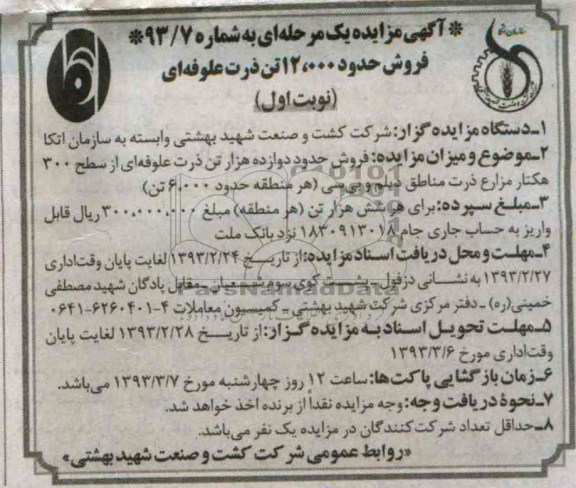 * آگهی مزایده یک مرحله‌ای به شماره ۹۳/۷ *
فروش حدود ۱۲،۰۰۰ تن ذرت علوفه‌ای
(نوبت اول)
۱ـ دستگاه مزایده گزار: شرکت کشت و صنعت شهید بهشتی وابسته به سازمان اتکا
۲ـ موضوع و میزان مزایده: فروش حدود دوازده هزار تن ذرت علوفه‌ای از سطح ۳۰۰
هکتار مزارع ذرت مناطق دیلم و بی‌بسی (هر منطقه حدود ۶،۰۰۰ تن)
۳ـ مبلغ سپرده: برای هر شش هزار تن (هر منطقه) مبلغ ۳۰۰،۰۰۰،۰۰۰ ریال قابل
واریز به حساب جاری جام ۱۸۳۰۹۱۳۰۱۸ نزد بانک ملت
۴ـ مهلت و محل دریافت اسناد مزایده: از تاریخ ۱۳۹۳/۲/۲۴ لغایت پایان وقت اداری
۱۳۹۳/۲/۲۷ به نشانی دزفول ـ پشت کوی سوم شعبان ـ مقابل پادگان شهید مصطفی
خمینی(ره) ـ دفتر مرکزی شرکت شهید بهشتی ـ کمیسیون معاملات ۴-۰۶۴۱-۶۲۶۰۴۰۱
۵ـ مهلت تحویل اسناد به مزایده گزار: از تاریخ ۱۳۹۳/۲/۲۸ لغایت پایان
وقت اداری مورخ ۱۳۹۳/۳/۶
۶ـ زمان بازگشایی پاکت‌ها: ساعت ۱۲ روز چهارشنبه مورخ ۱۳۹۳/۳/۷ می‌باشد.
۷ـ نحوهٔ دریافت وجه: وجه مزایده نقداً از برنده اخذ خواهد شد.
۸ـ حداقل تعداد شرکت‌کنندگان در مزایده یک نفر می‌باشد.
«روابط عمومی شرکت کشت و صنعت شهید بهشتی»